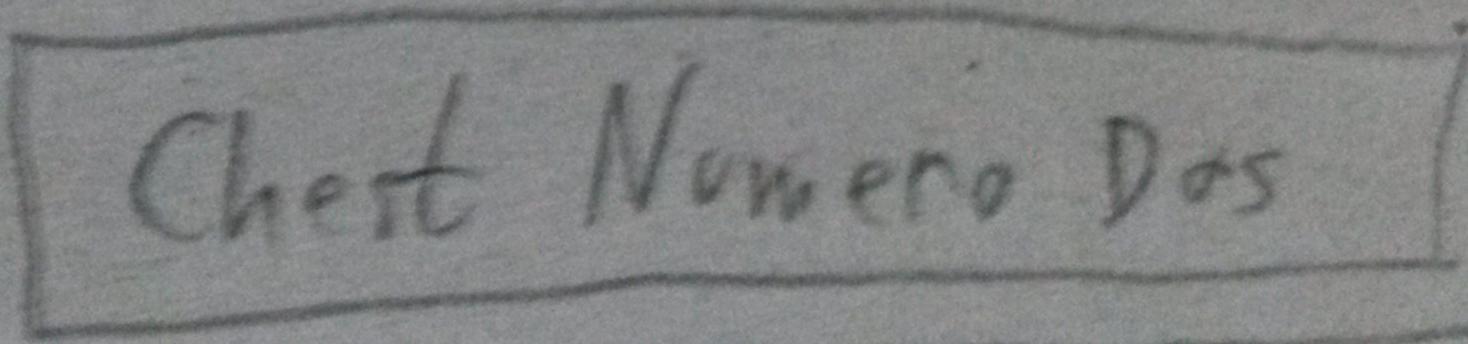 Chest Numero Dos